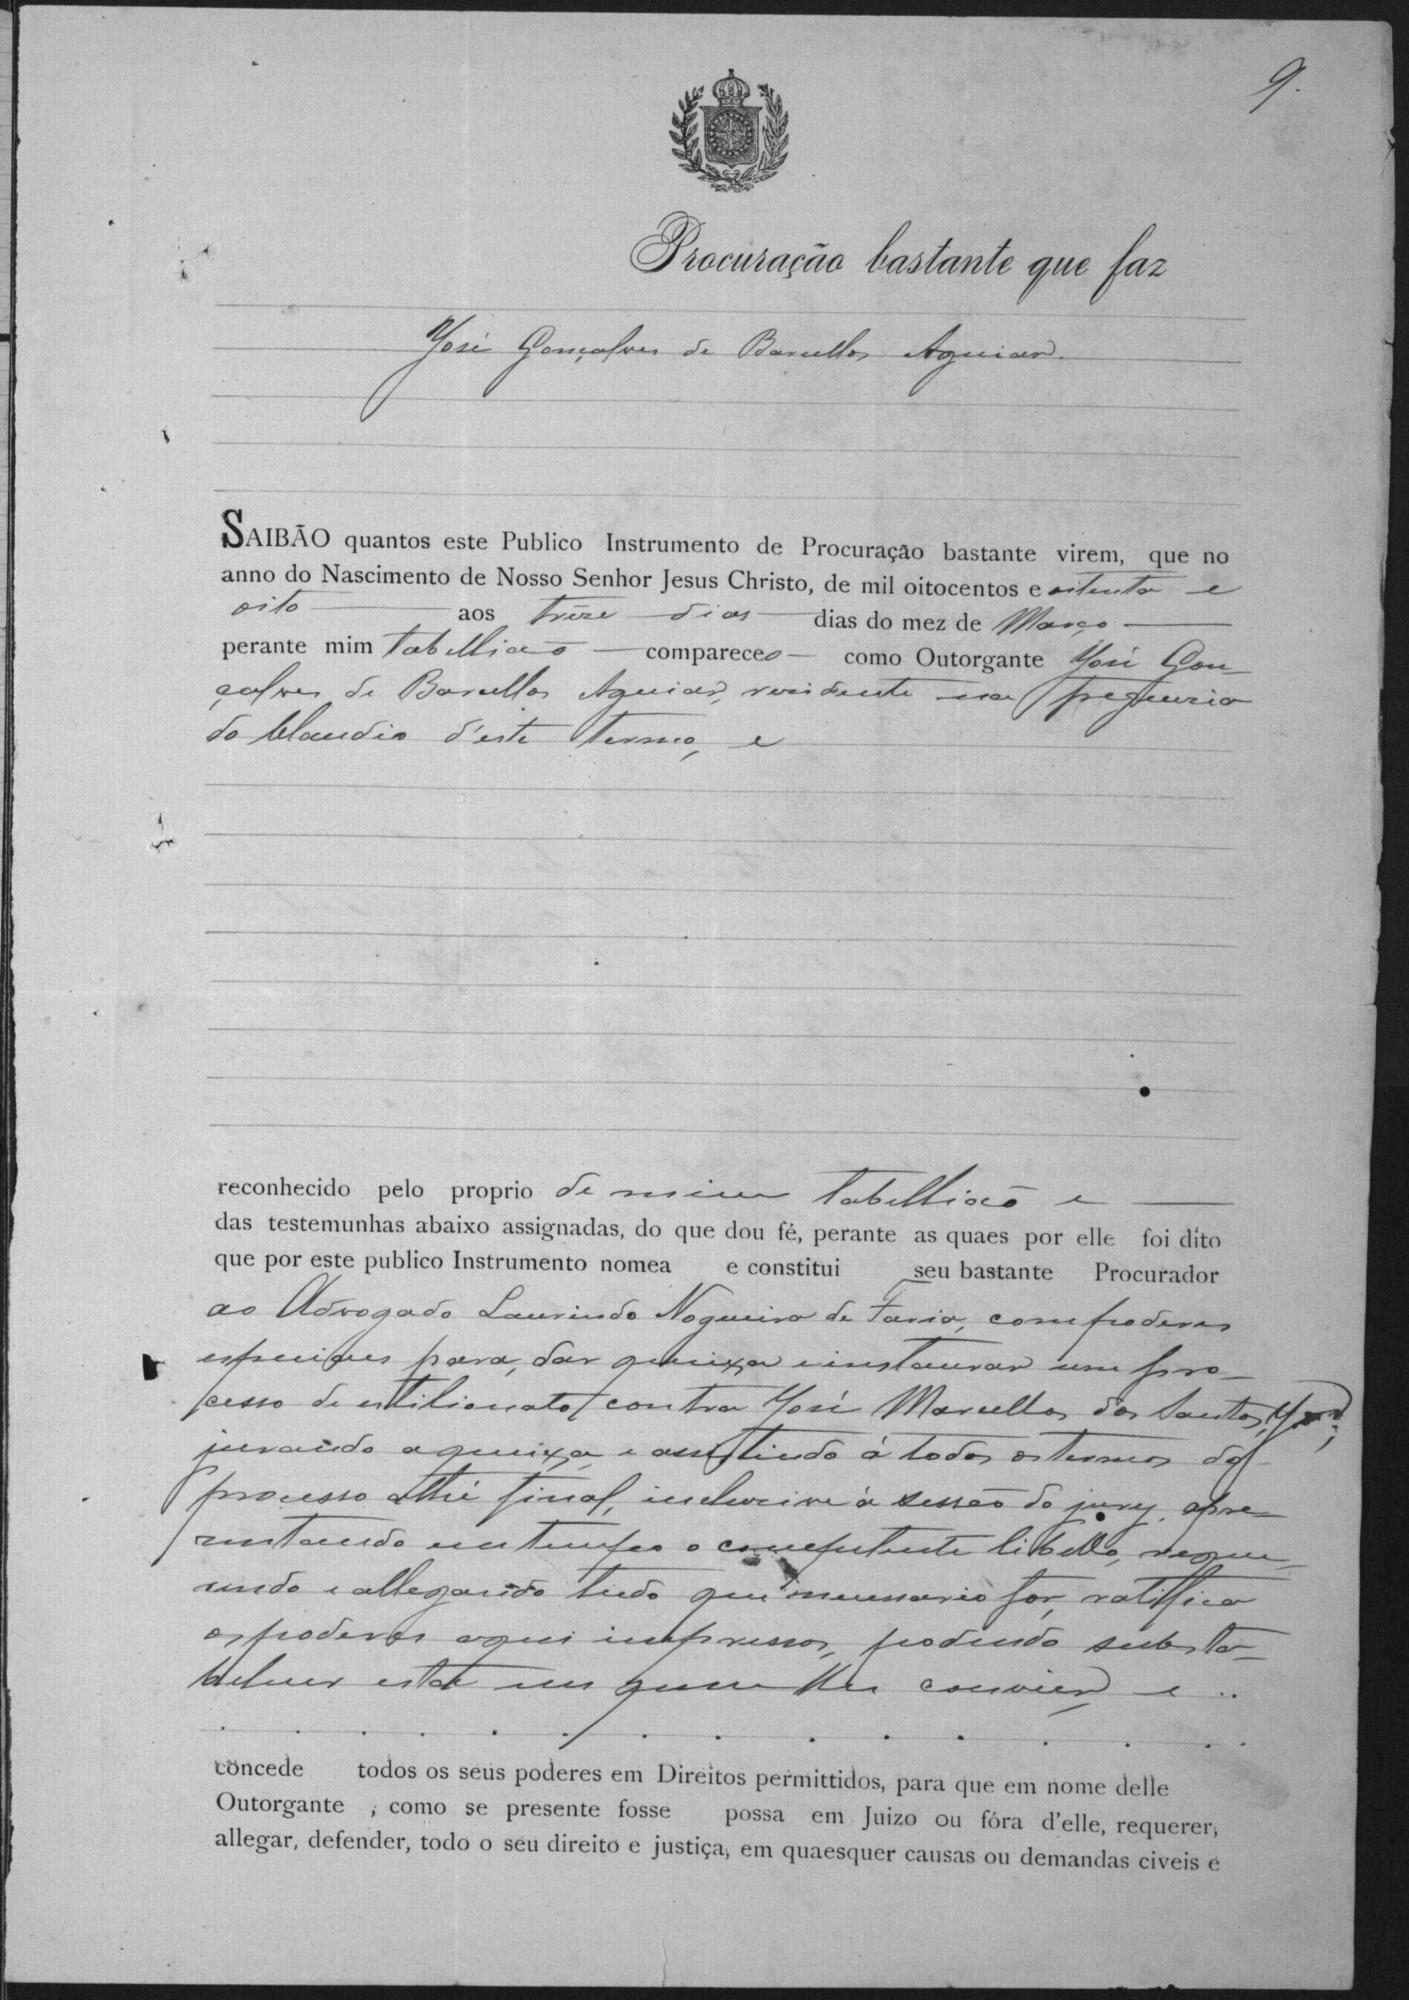 9.
Procuração bastante que faz
José Gonçalves de Barcellos Aguiar.
SAIBÃO quantos este Publico Instrumento de Procuração bastante virem, que no
anno do Nascimento de Nosso Senhor Jesus Christo, de mil oitocentos e oitenta e
oito aos trêze dias dias do mez de Março
perante mim tabellião compareceo como Outorgante José Gon-
çalves de Barcellos Aguiar, residente na freguezia
do Claudio d'este termo, e
reconhecido pelo proprio de mim tabellião e
das testemunhas abaixo assignadas, do que dou fé, perante as quaes por elle foi dito
que por este publico Instrumento nomea e constitui seu bastante Procurador
ao Advogado Laurindo Nogueira de Faria, com poderes
especiaes para, dar queixa e instaurar um pro-
cesso de estilionato contra José Marcellos dos Santos,
jurando a queixa, e assistindo á todos os termos do
processo athé final, inclusive á sessão do jury, apre-
zentando em tempo o competente libello, reque-
rendo e allegando tudo que necessario for, ratifica
os poderes aqui impressos, podendo substa-
belecer esta em quem lhe convier, e
concede todos os seus poderes em Direitos permittidos, para que em nome delle
Outorgante , como se presente fosse possa em Juizo ou fóra d'elle, requerer,
allegar, defender, todo o seu direito e justiça, em quaesquer causas ou demandas civeis e